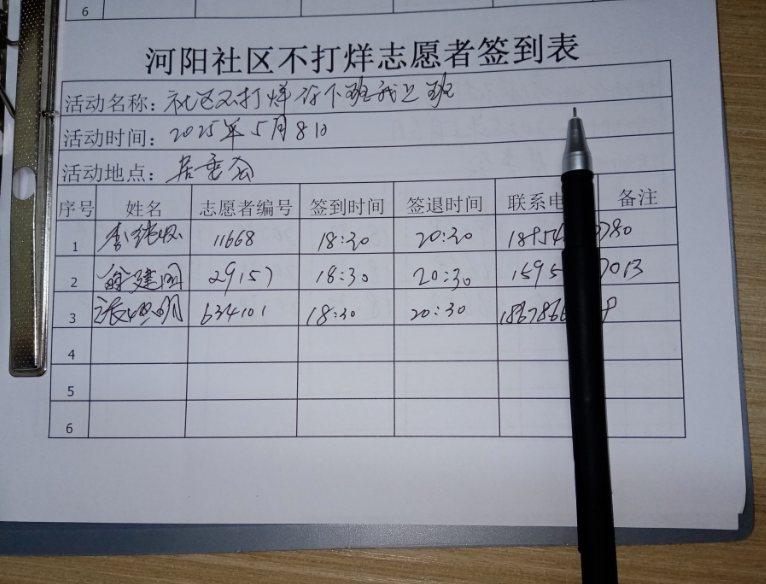 6
河阳社区不打烊志愿者签到表
活动名称：社区不打烊 你下班我上班
活动时间：2025年5月8日
活动地点：居委会
序号 姓名 志愿者编号 签到时间 签退时间 联系电 备注
1 11668 18:30 20:30 18954 780
2 徐建国 29157 18:30 20:30 1595 7013
3 634101 18:30 20:30 1867866 8
4
5
6